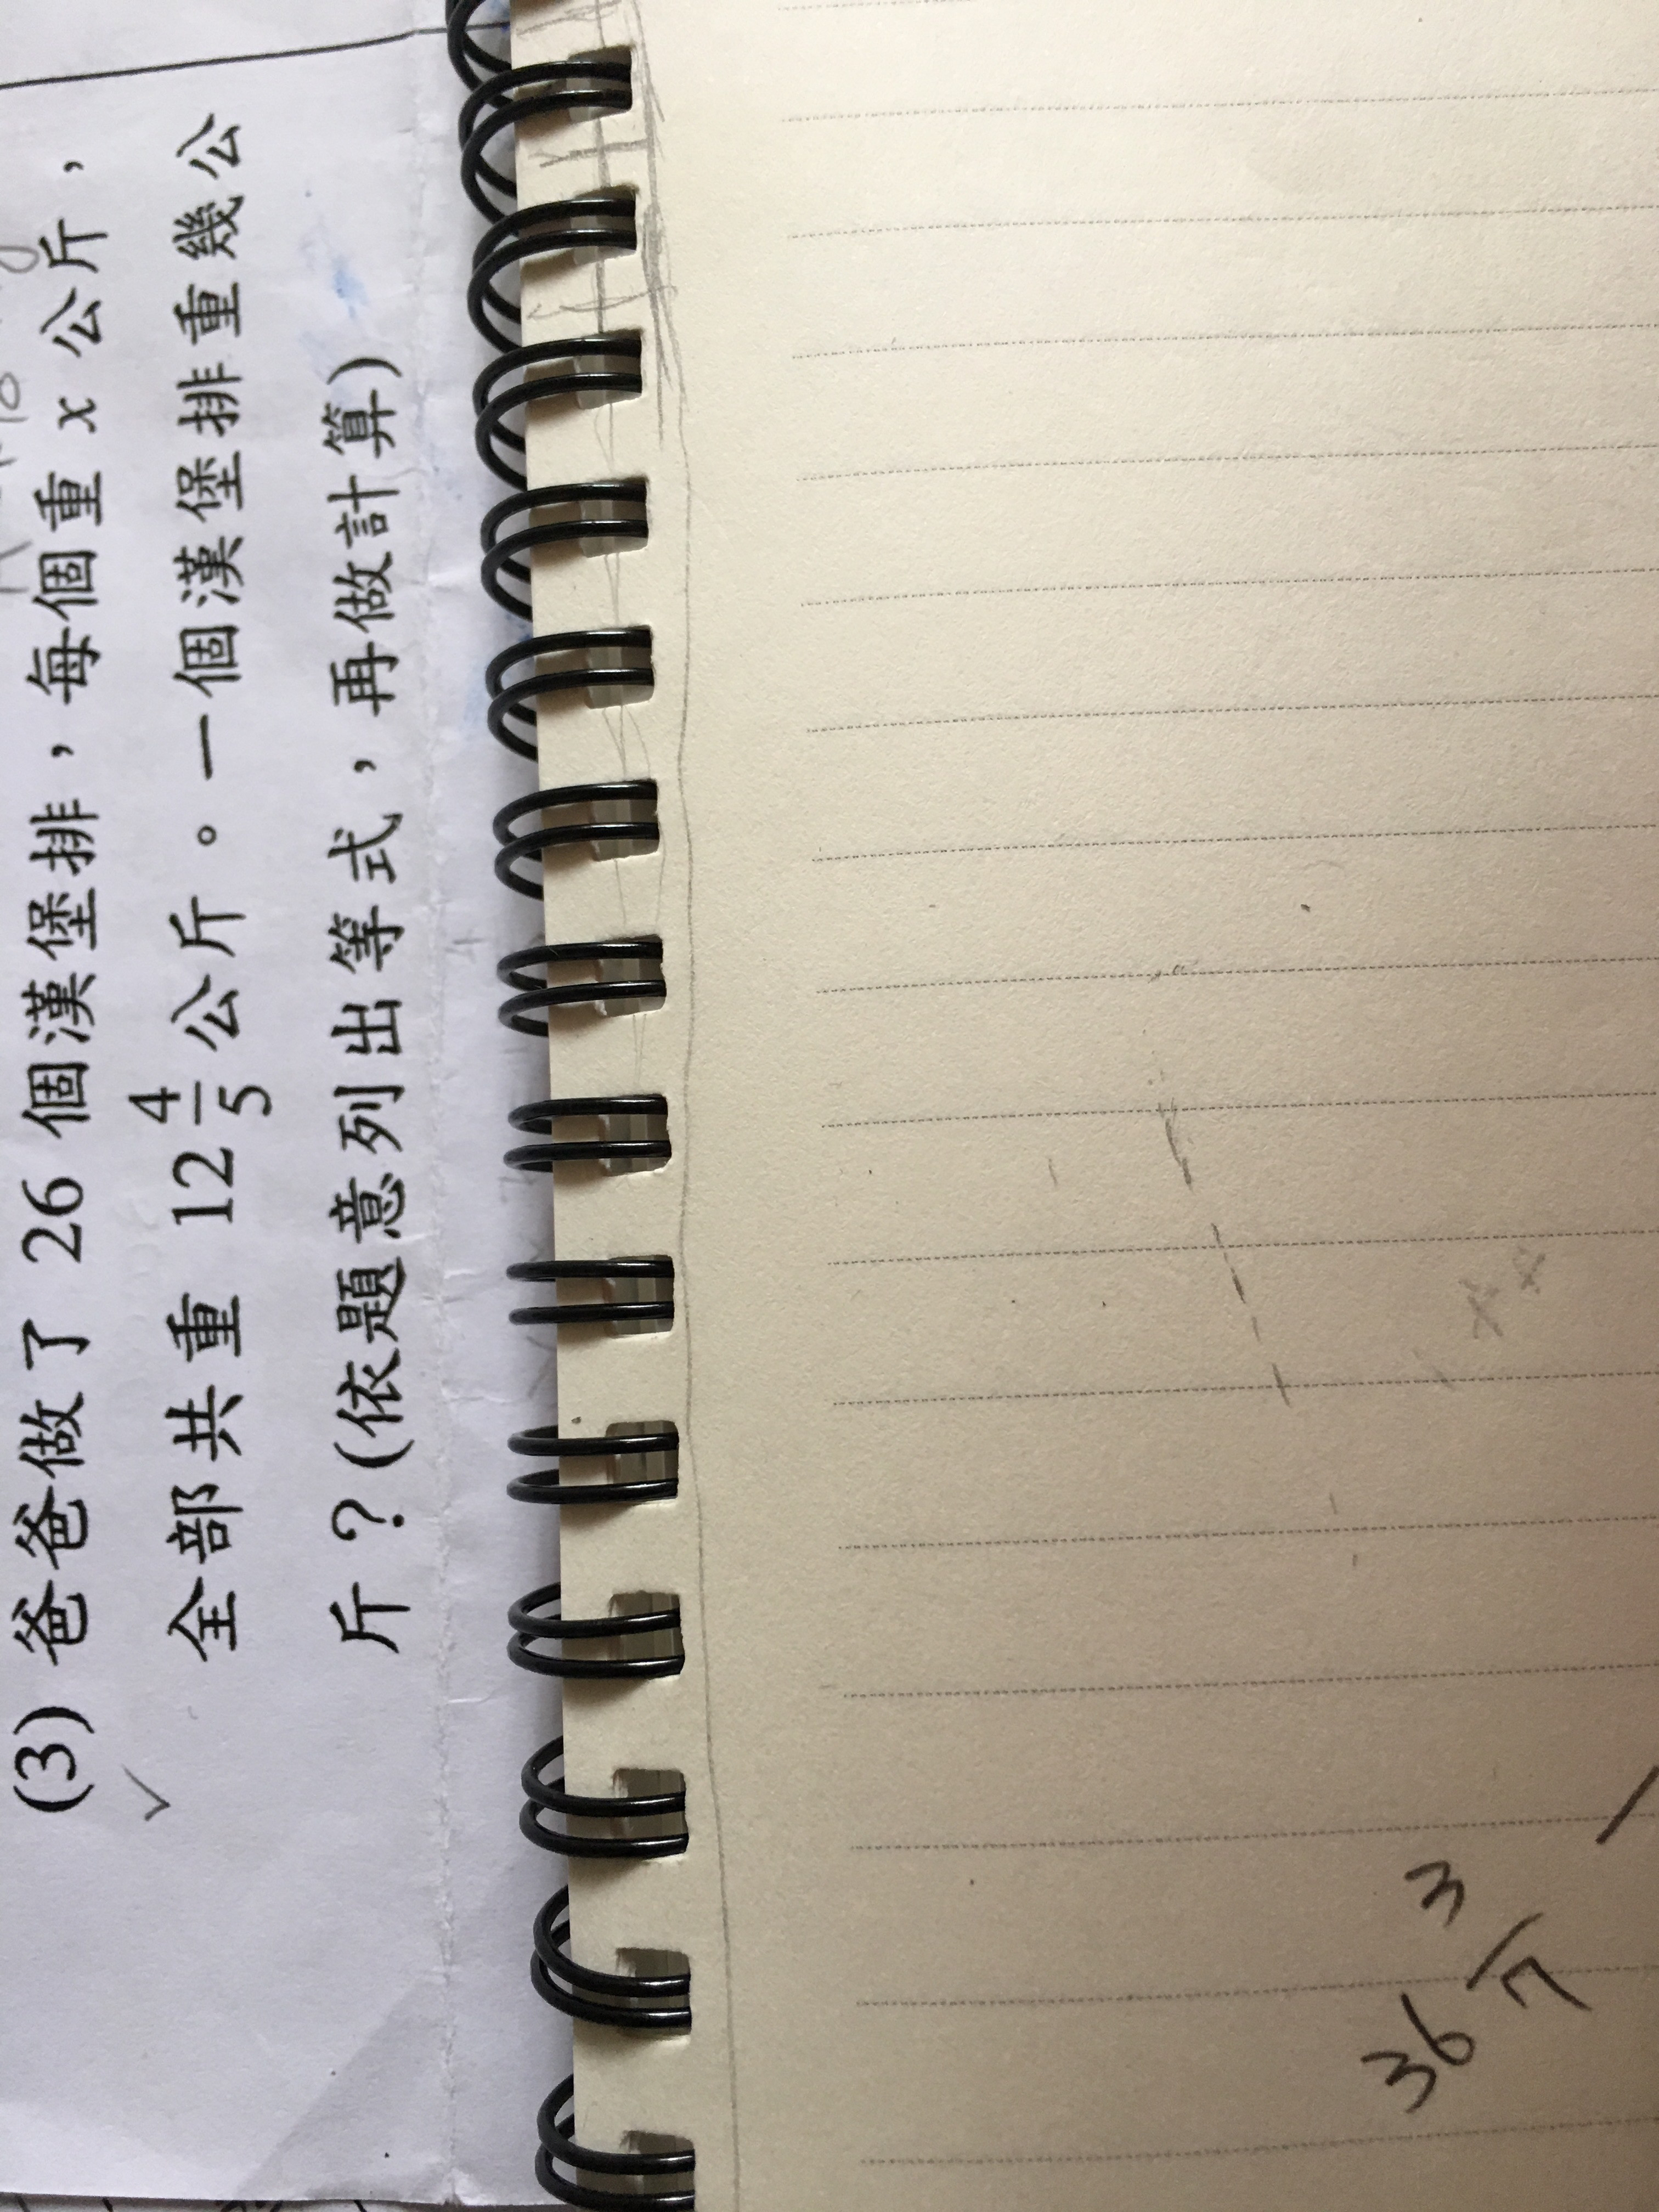 (3) 爸爸做了 26 個漢堡排，每個重 x 公斤，
全部共重 12 4/5 公斤。一個漢堡排重幾公
斤？(依題意列出等式，再做計算)
36 3/7